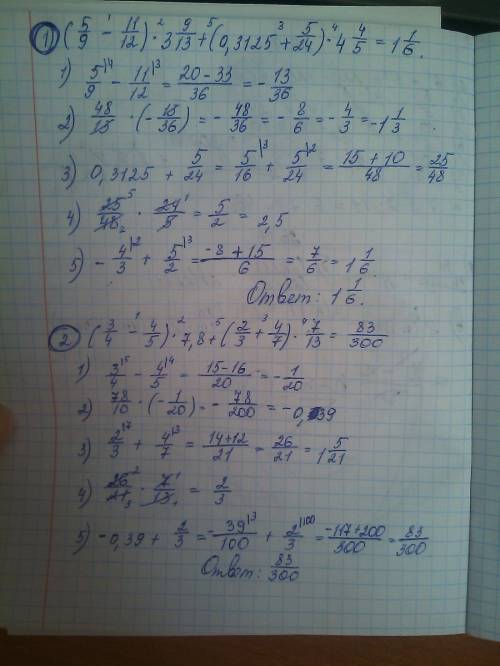 1) (5/9 - 11/12) · 3 9/13 + (0,3125 + 5/24) · 4 4/5 = 1 1/6.
1) 5/9 - 11/12 = 20-33/36 = - 13/36
2) 48/13 · (- 13/36) = - 48/36 = - 8/6 = - 4/3 = -1 1/3
3) 0,3125 + 5/24 = 5/16 + 5/24 = 15+10/48 = 25/48
4) 25/48 · 24/5 = 5/2 = 2,5
5) - 4/3 + 5/2 = -8+15/6 = 7/6 = 1 1/6
Ответ: 1 1/6.
2 (3/4 - 4/5) · 7,8 + (2/3 + 4/7) · 7/13 = 83/300
1) 3/4 - 4/5 = 15-16/20 = - 1/20
2) 78/10 · (- 1/20) = - 78/200 = -0,39
3) 2/3 + 4/7 = 14+12/21 = 26/21 = 1 5/21
4) 26/21 · 7/13 = 2/3
5) -0,39 + 2/3 = - 39/100 + 2/3 = -117+200/300 = 83/300
Ответ: 83/300